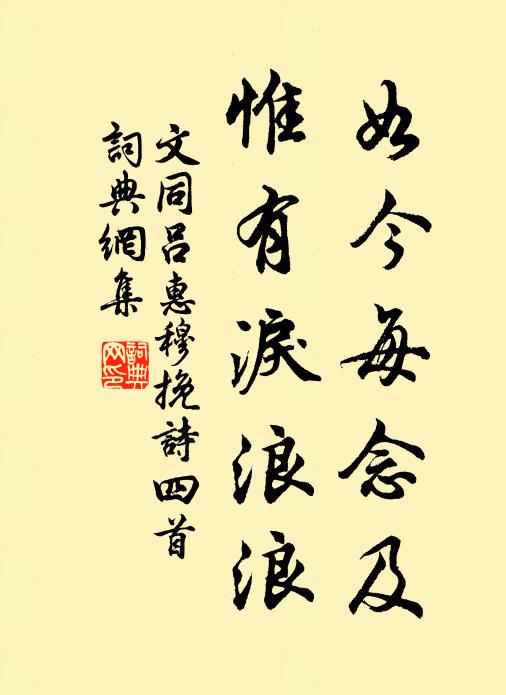 如今每念及
惟有淚浪浪
文同呂惠穆挽詩四首
詞典網集
詞典网印